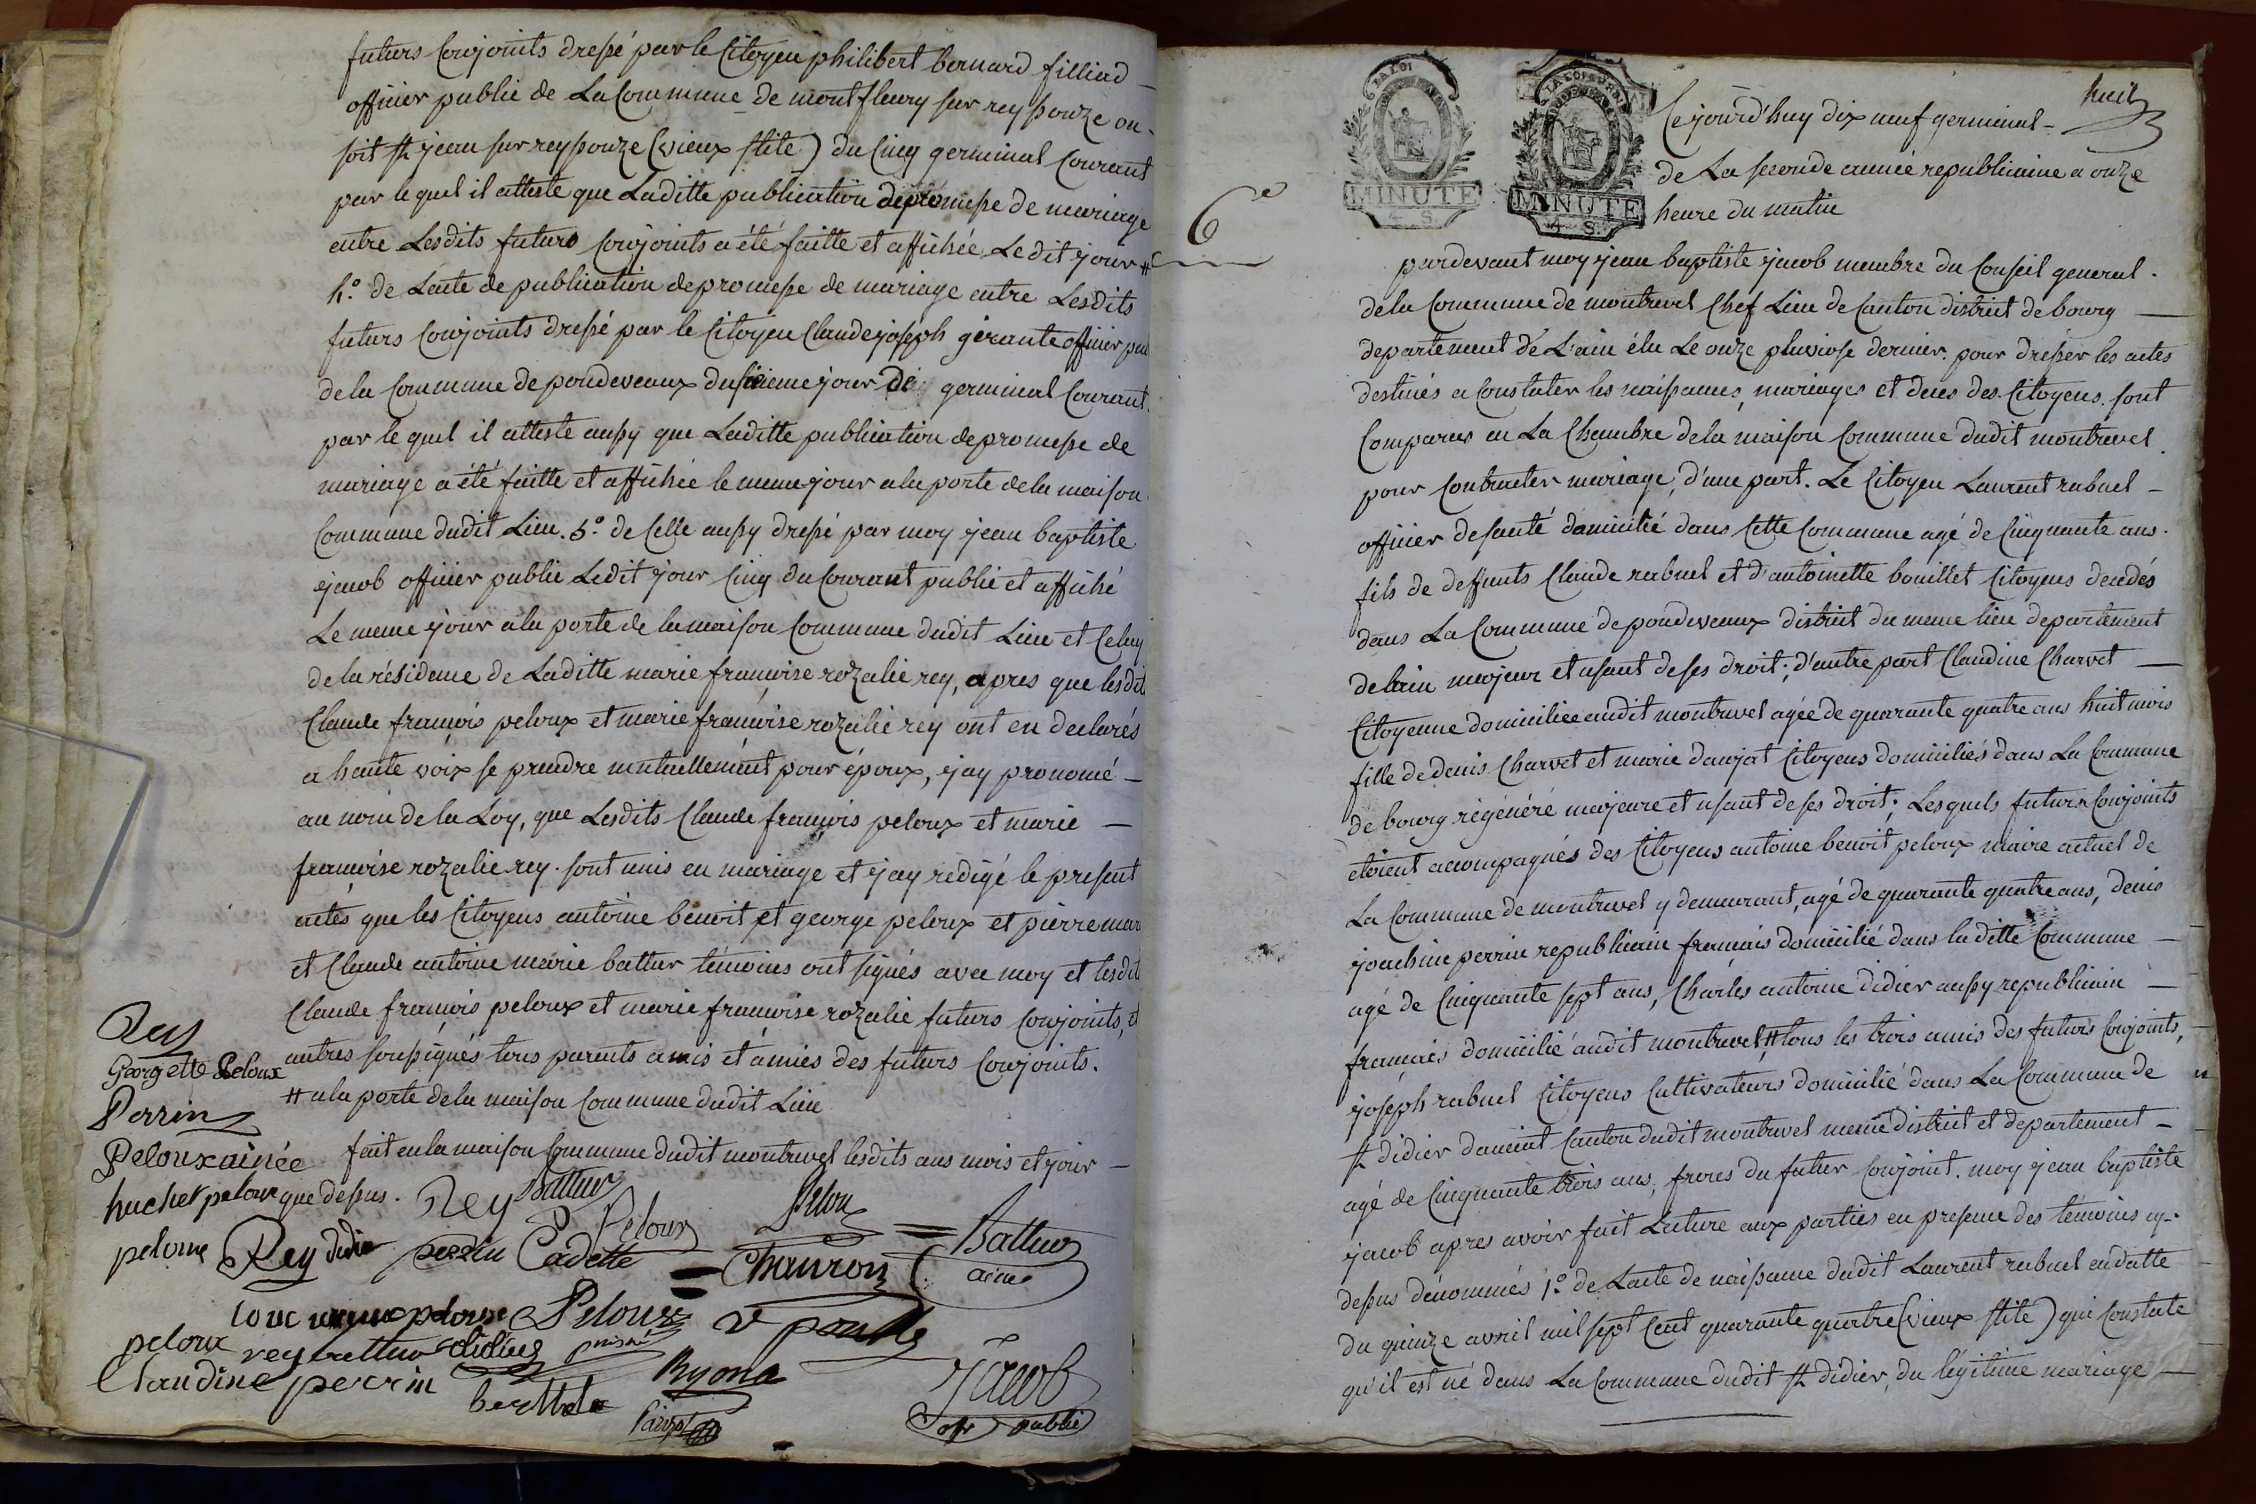 futurs Conjoints dressé par le Citoyen philibert bernard filliad
officier public de La Commune de montfleury sur reyssouze ou
soit st jean sur reyssouze (vieux stile) du Cinq germinal Courant
par le quel il atteste que Laditte publication de promesse de mariage
entre Lesdits futurs Conjoints a été faitte et affichée Ledit jour #
4.º de Lacte de publication de promesse de mariage entre Lesdits
futurs Conjoints dressé par le Citoyen Claude joseph gerante officier pu
de la Commune de pondeveaux du sixieme jour de germinal Courant
par le quel il atteste aussy que Laditte publication de promesse de
mariage a été faitte et affichée le meme jour a la porte de la maison
Commune dudit Lieu. 5.º de Celle aussy dressé par moy jean baptiste
jacob officier public Ledit jour Cinq du Courant publié et affiché
Le meme jour a la porte de la maison Commune dudit Lieu et Celuy
de la résidence de Laditte marie françoise rozalie rey, apres que lesdit
Claude françois peloux et marie françoise rozalie rey ont eu declarés
a haute voix se prendre mutuellement pour époux, jay prononcé
au nom de la Loy, que Lesdits Claude françois peloux et marie
françoise rozalie rey. sont unis en mariage et jay redigé le present
actes que les Citoyens antoine benoit et george peloux et pierre mar
et Claude antoine marie battur témoins ont signés avec moy et lesdit
Claude françois peloux et marie françoise rozalie futurs Conjoints, et
autres soussignés tous parents amis et amies des futurs Conjoints.
# a la porte de la maison Commune dudit Lieu
fait en la maison Commune dudit montrevel lesdits ans mois et jour
que dessus.
Rey
Georgette Peloux
Perrin
Peloux ainée
huchet peloux
peloux
Rey didier
Rey
Battur
perrin
Cadette
Peloux
Pelou
Chauron
Battur
ainé
peloux
rey battur
didier
Peloux
Claudine perrin
Ryona
Jacob
offr public
6e
LA LOI
MINUTE
4. S.
MINUTE
4. S.
huit
Cejourd'huy dix neuf germinal
de La seconde année republicaine a onze
heure du matin
pardevant moy jean baptiste jacob membre du Conseil general
de la Commune de montrevel Chef Lieu de Canton district de bourg
departement de L'ain élu Le onze pluviose dernier. pour dresser les actes
destinés a Constater les naissances, mariages et deces des Citoyens. sont
Comparus en La Chambre de la maison Commune dudit montrevel
pour Contracter mariage, d'une part. Le Citoyen Laurent rabuel
officier de santé domicilié dans Cette Commune agé de Cinquante ans.
fils de deffunts Claude rabuel et d'antoinette bouillet Citoyens decedés
dans La Commune de pondeveaux district du meme lieu departement
delain majeur et usant de ses droit; d'autre part Claudine Charvet
Citoyenne domiciliee audit montrevel agée de quarante quatre ans huit mois
fille de denis Charvet et marie danjat Citoyens domiciliés dans La Commune
de bourg régénéré majeure et usant de ses droit; Lesquels futurs Conjoints
etoient accompagnés des Citoyens antoine benoit peloux maire actuel de
La Commune de montrevel y demeurant, agé de quarante quatre ans, denis
joachim perrin republicain français domicilié dans laditte Commune
agé de Cinquante sept ans, Charles antoine didier aussy republicain
français domicilié audit montrevel # tous les trois amis des futurs Conjoints,
joseph rabuel Citoyens Cultivateurs domicilié dans La Commune de
st didier daucint Canton dudit montrevel meme district et departement
agé de Cinquante trois ans, freres du futur Conjoint. moy jean baptiste
jacob apres avoir fait Lecture aux parties en presence des témoins cy-
dessus dénommés 1.º de Lacte de naissance dudit Laurent rabuel en datte
du quinze avril mil sept Cent quarante quatre (vieux stile) qui Constate
qu'il est né dans La Commune dudit st didier, du légitime mariage